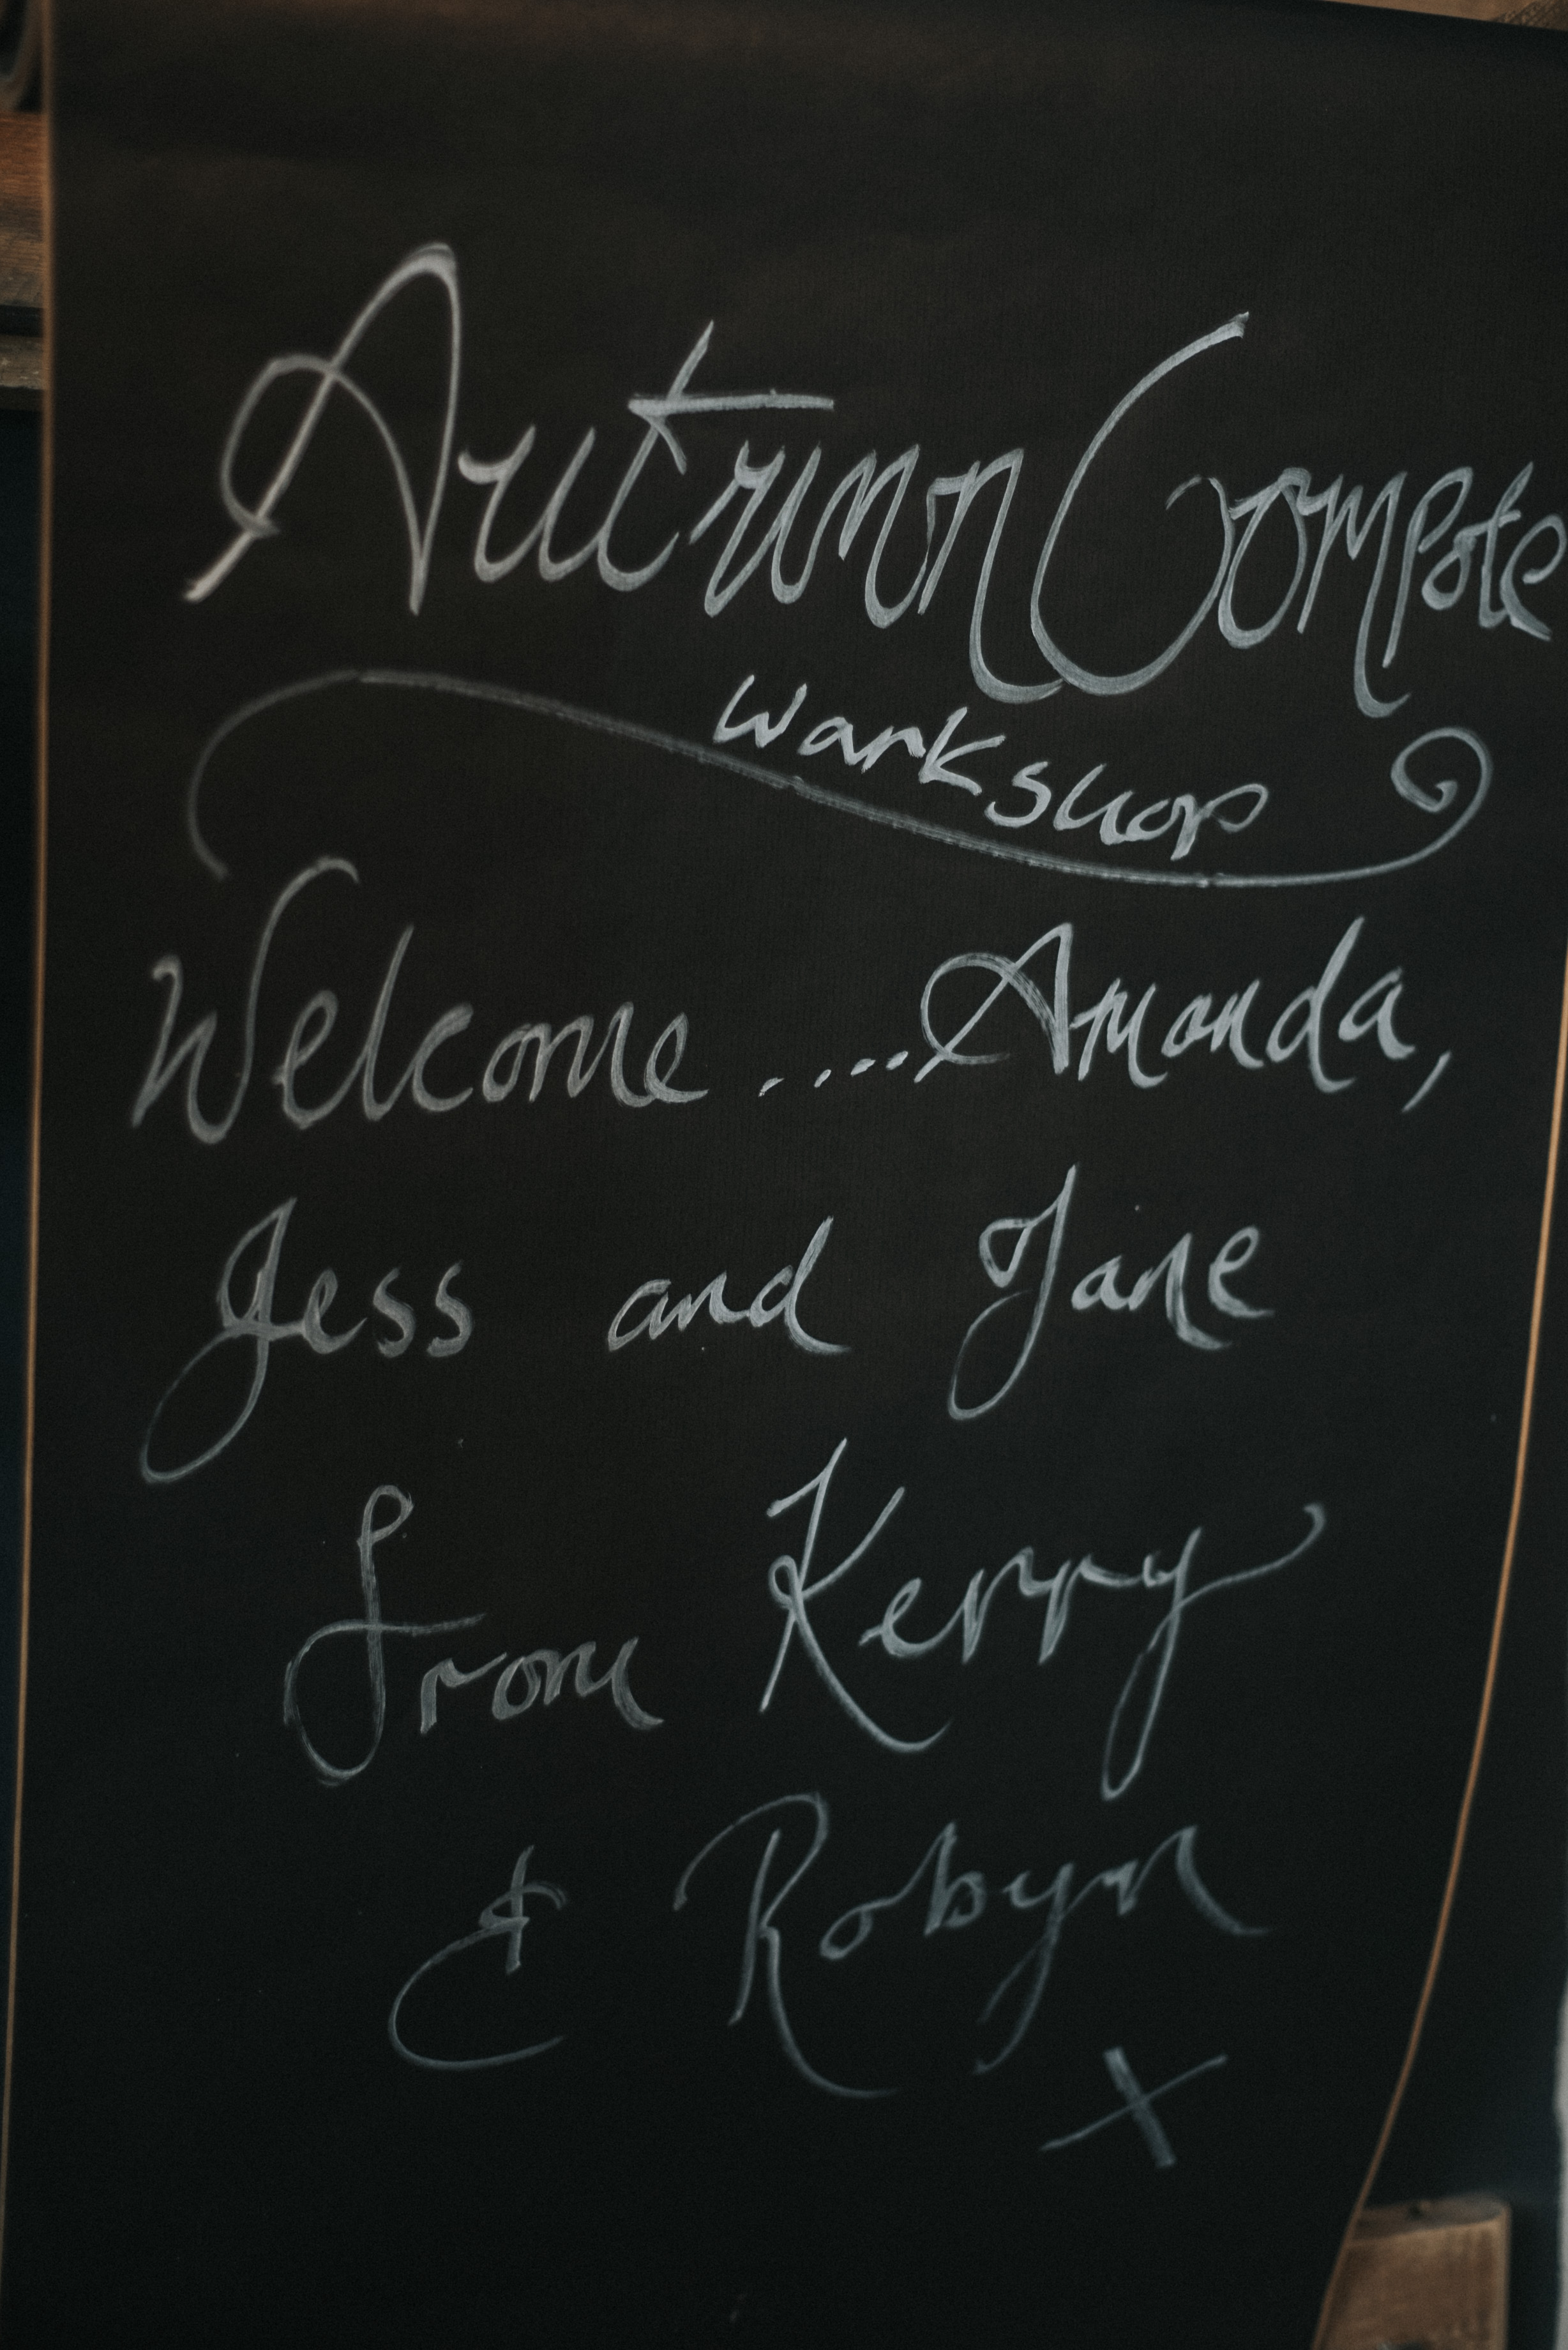 Autumn Compote
Workshop
Welcome ....Amanda,
Jess and Jane
from Kerry
& Robyn
X